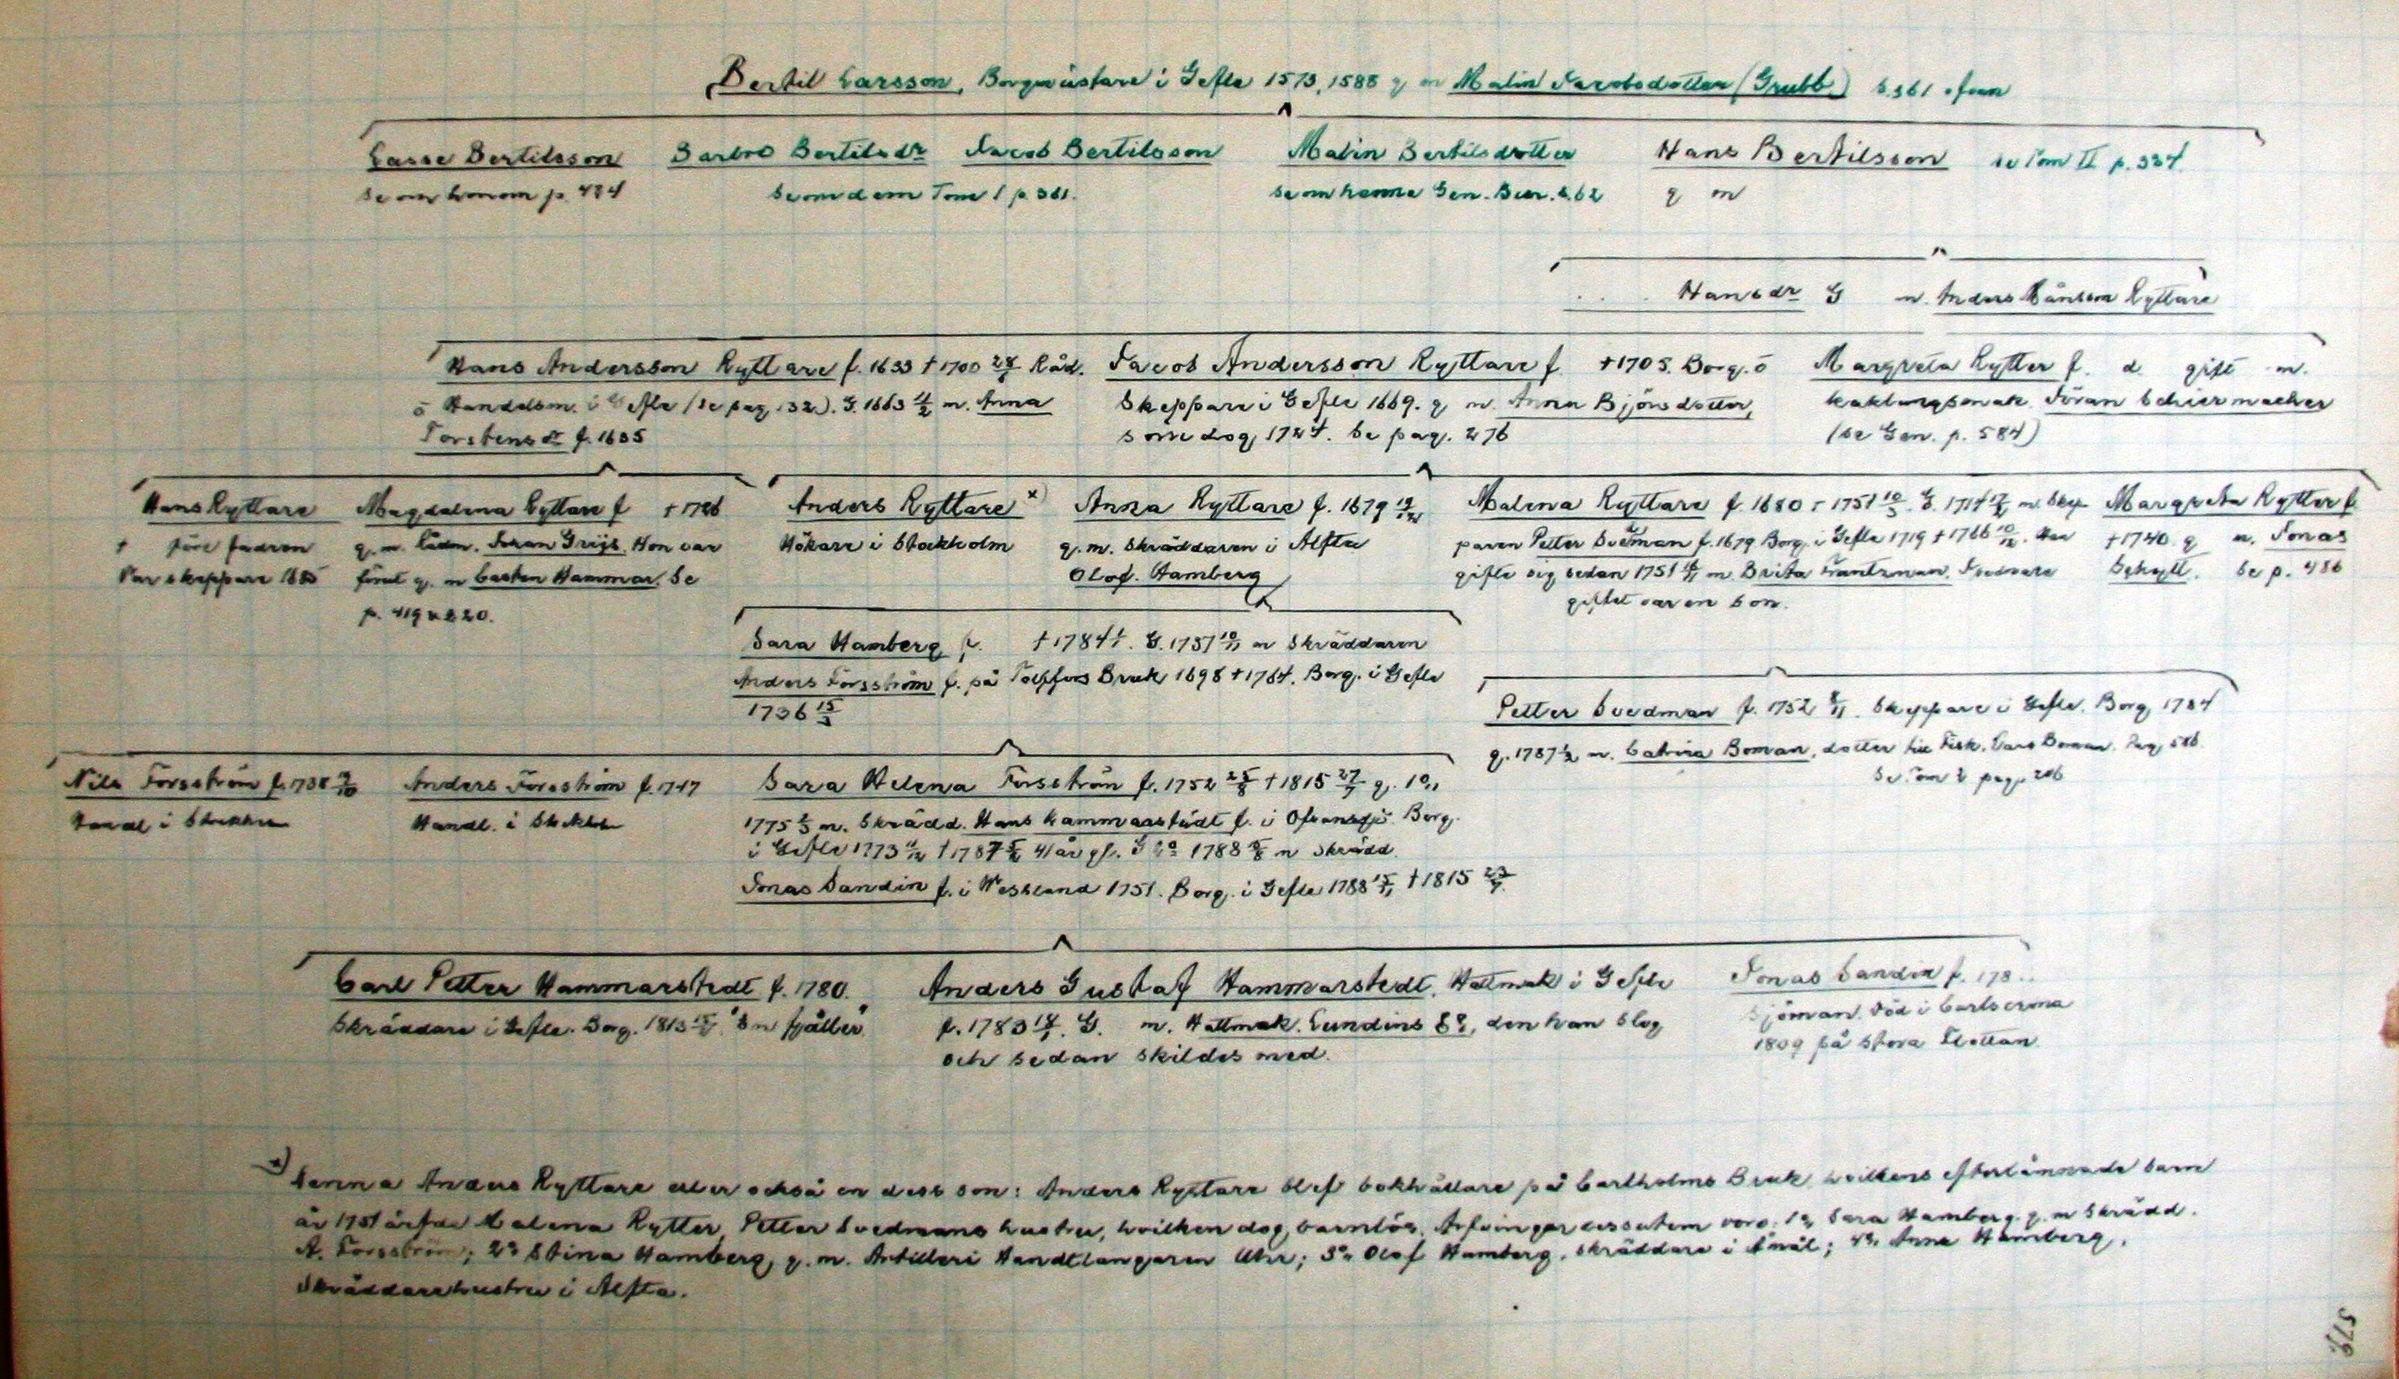 Bertil Larsson, Borgmästare i Gefle 1573, 1588 g m Malin Jacobsdotter (Grubb) s. 361 ofvan
Lasse Bertilsson
se om honom p. 484
Barbro Bertilsdr Jacob Bertilsson
se om dem Tom 1 p. 361.
Malin Bertilsdotter
se om henne Gen. Bur. s. 62
Hans Bertilsson se Tom II p. 334.
g m
Hansdr G m. Anders Månsson Ryttare
Hans Andersson Ryttare f. 1633 † 1700 Råd.
o Handelsm. i Gefle (se pag. 132.). G. 1663 m. Anna
Torstensdr f. 1635
Jacob Andersson Ryttare f † 1705. Borg. o
Skeppare i Gefle 1669. g m. Anna Björsdotter,
som dog 1724. se pag. 276
Margreta Rytter f. d. gift m.
kakelugnsmak. Jöran Schiermacher
(se Gen. p. 584)
Hans Ryttare
† före fadren
Var skeppare
Magdalena Ryttare f † 1726
g. m. Johan Grijs. Hon var
först g. m Carsten Hammar. Se
p. 419
Anders Ryttare x)
Hökare i Stockholm
Anna Ryttare f. 1679
g. m. Skräddaren i Alfta
Olof Hamberg
Malena Ryttare f. 1680 † 1751 G. 1714 m. Skep
paren Petter Svedman f. 1679 Borg. i Gefle 1719 † 1766 Han
gifte sig sedan 1751 m. Brita Frantzman. I senare
giftet var en son.
Margreta Rytter f.
† 1740. g m. Jonas
Schytt. se p. 486
Sara Hamberg f. † 1784. G. 1737 m Skräddaren
Anders Forsström f. på Tolffors Bruk 1698 † 1764. Borg. i Gefle
1736 15/3
Petter Svedman f. 1752 Skeppare i Gefle. Borg. 1784
g. 1787 m. Catrina Boman, dotter till Fisk. Lars Boman. Pag. 586.
Se Tom 2 pag. 206
Nils Forsström f. 1738
Handl i Stockholm
Anders Forsström f. 1747
Handl. i Stockholm
Sara Helena Forsström f. 1752 25/8 † 1815 27/7 g. 1o,
1775 m. Skrädd. Hans Hammarstedt f. i Ofvansjö. Borg.
i Gefle 1773 † 1787 41 år gl. G 2o 1788 m Skrädd.
Jonas Sandin f. i Westland 1751. Borg. i Gefle 1788 † 1815
Carl Petter Hammarstedt f. 1780.
Skräddare i Gefle. Borg. 1813 "En fjäller"
Anders Gustaf Hammarstedt. Hattmak i Gefle
f. 1783 G. m. Hattmak. Lundins Eo, den han slog
och sedan skildes med.
Jonas Sandin f. 178..
Sjöman. Död i Carlscrona
1809 på Stora Flottan.
x) Denna Anders Ryttare eller också en dess son: Anders Ryttare blef bokhållare på Carlholms Bruk hvilkens efterlämnade barn
år 1751 ärfde Malena Rytter, Petter Svedmans hustru, hvilken dog barnlös. Arfvingar dessutom voro: 1o Sara Hamberg g. m Skrädd.
A. Forsström; 2o Stina Hamberg, g. m. Artilleri Handtlangaren Uhr; 3o Olof Hamberg, skräddare i Åmål; 4o Anna Hamberg,
Skräddarehustru i Alfta.
579.